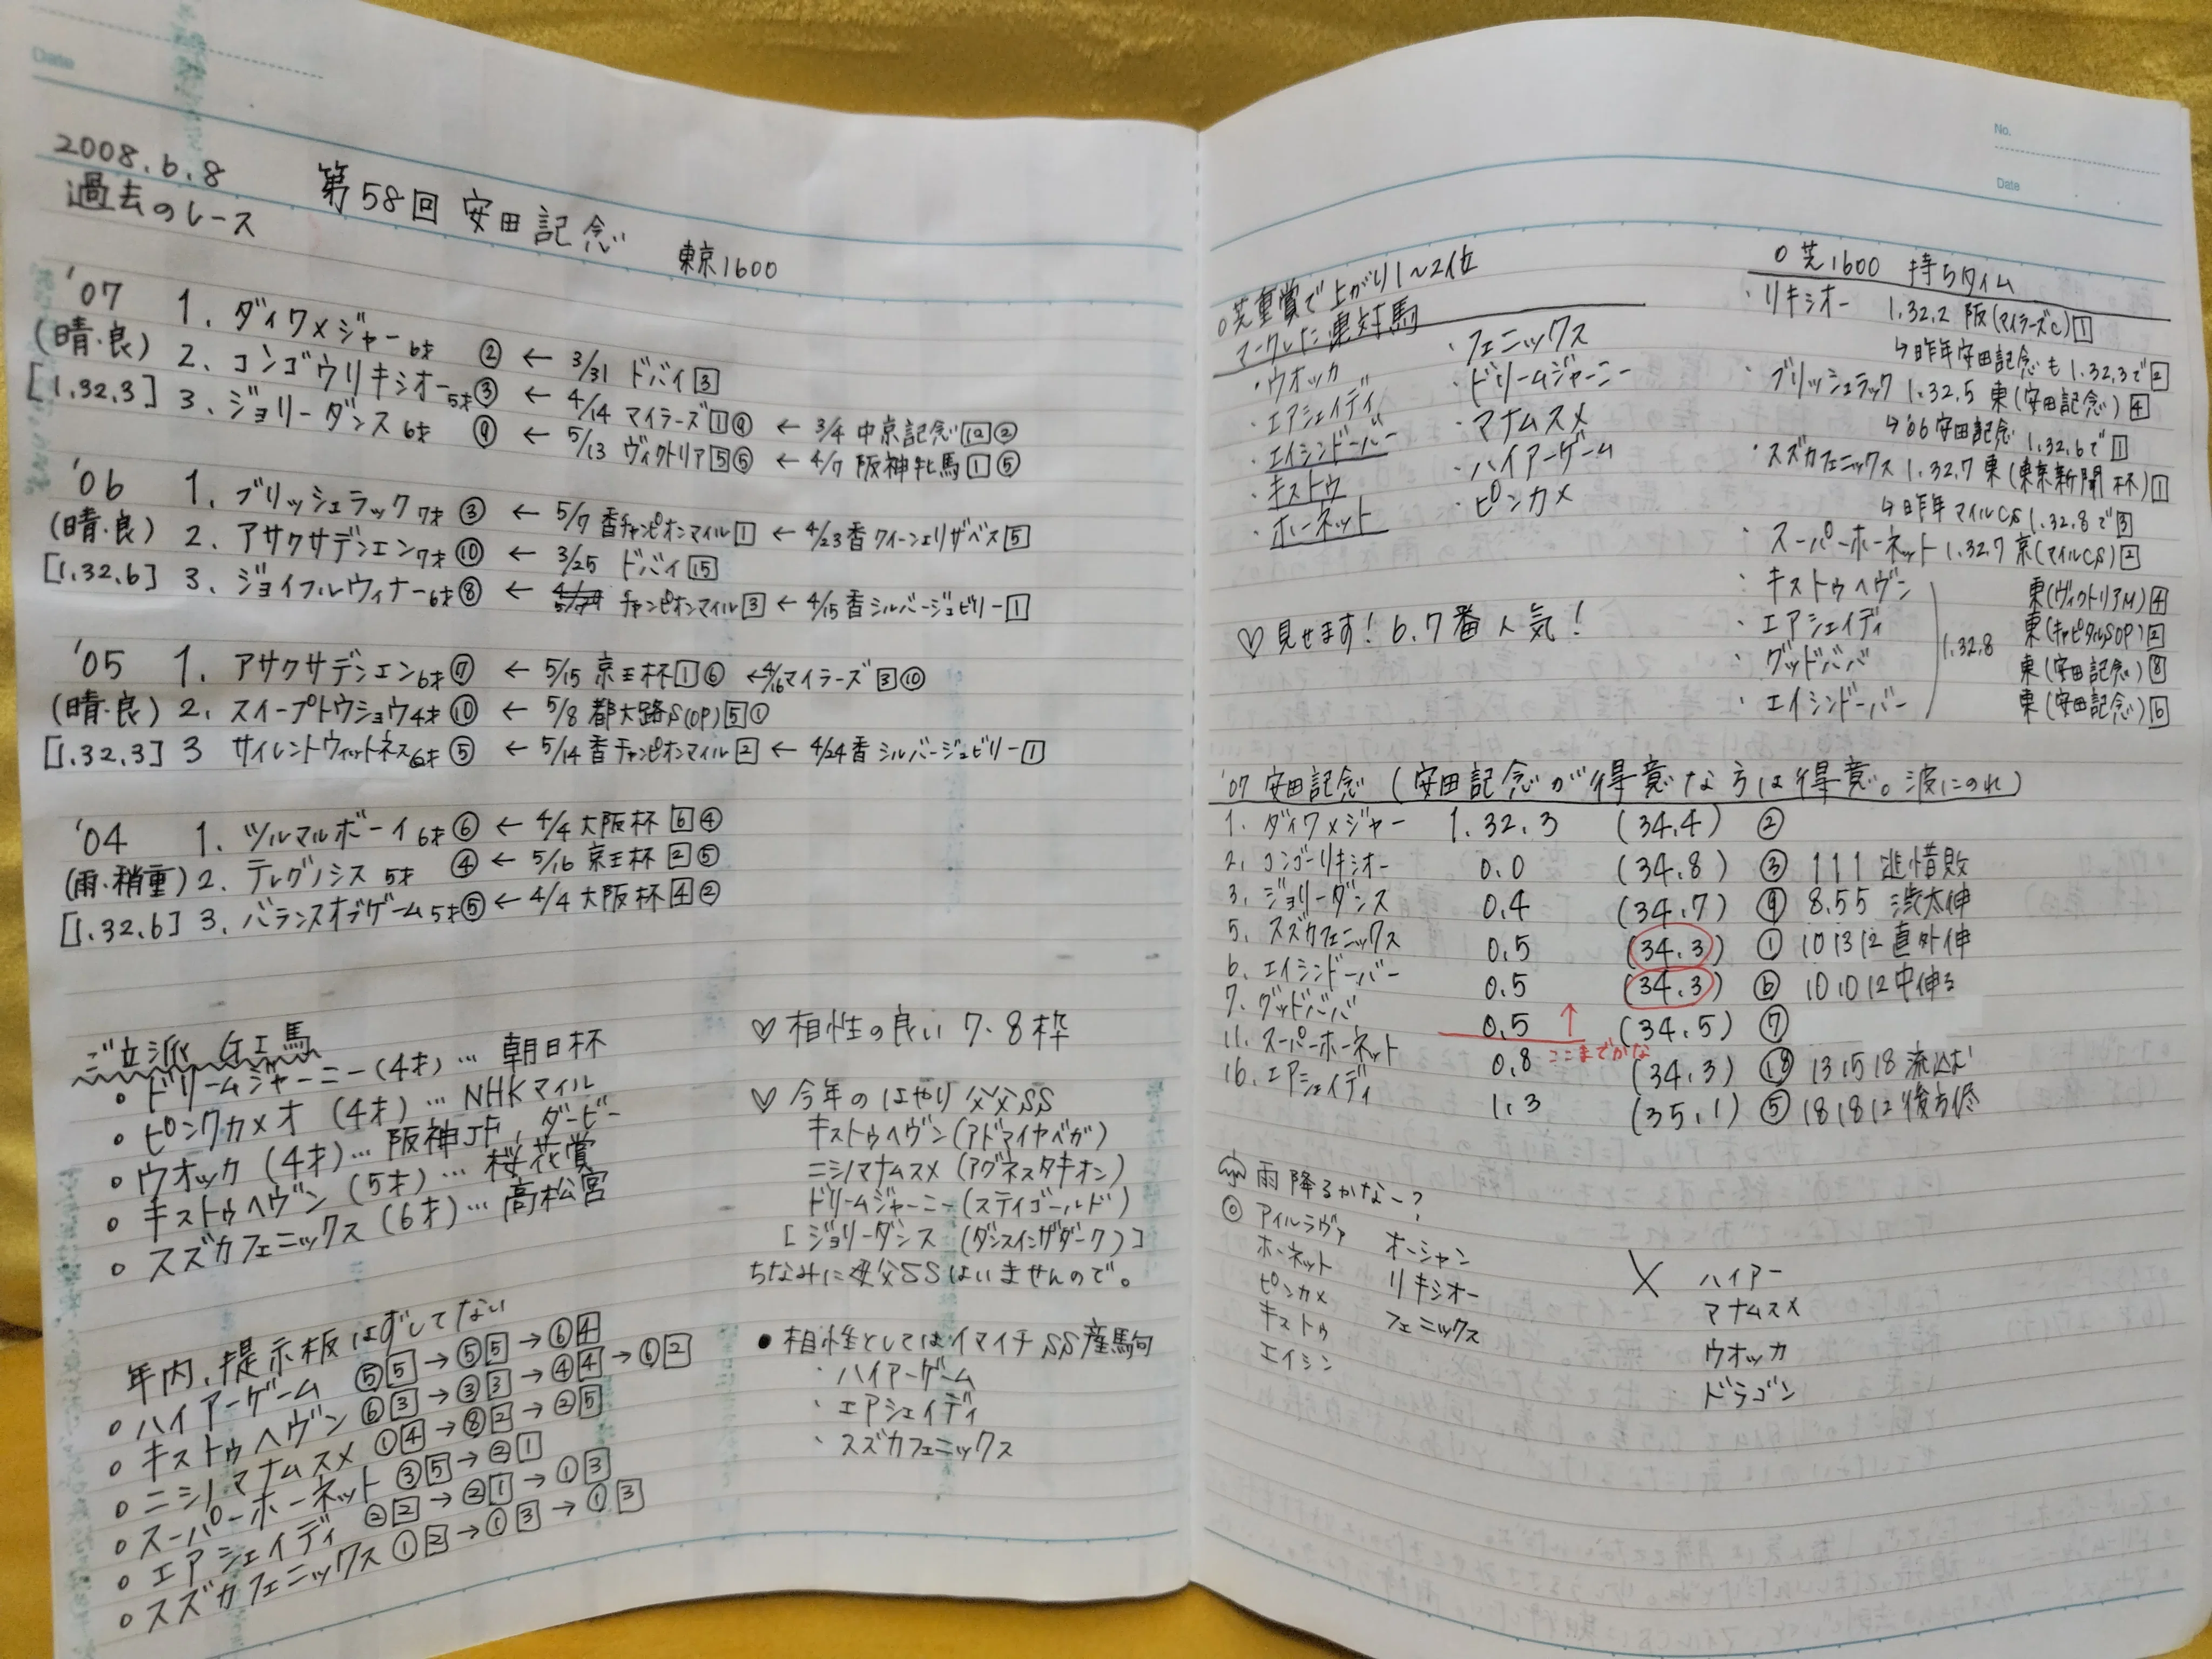 Date
2008.6.8
過去のレース
第58回 安田記念 東京1600
'07 1. ダイワメジャー6才 ② ← 3/31 ドバイ[3]
(晴・良) 2. コンゴウリキシオー5才 ③ ← 4/14 マイラーズ[1]④ ← 3/4 中京記念[12]②
[1.32.3] 3. ジョリーダンス6才 ⑨ ← 5/13 ヴィクトリア[5]⑤ ← 4/7 阪神牝馬[1]⑤
'06 1. ブリッシュラック7才 ③ ← 5/7 香チャンピオンマイル[1] ← 4/23香クイーンエリザベス[5]
(晴・良) 2. アサクサデンエン7才 ⑩ ← 3/25 ドバイ[15]
[1.32.6] 3. ジョイフルウィナー6才 ⑧ ← チャンピオンマイル[3] ← 4/15香シルバージュビリー[1]
'05 1. アサクサデンエン6才 ⑦ ← 5/15 京王杯[1]⑥ ← 4/16マイラーズ[3]⑩
(晴・良) 2. スイープトウショウ4才 ⑩ ← 5/8 都大路S(OP)[5]①
[1.32.3] 3 サイレントウィットネス6才 ⑤ ← 5/14香チャンピオンマイル[2] ← 4/24香シルバージュビリー[1]
'04 1. ツルマルボーイ6才 ⑥ ← 4/4 大阪杯[6]④
(雨・稍重) 2. テレグノシス5才 ④ ← 5/16 京王杯[2]⑤
[1.32.6] 3. バランスオブゲーム5才 ⑤ ← 4/4 大阪杯[4]②
ご立派 GI馬
・ドリームジャーニー(4才)… 朝日杯
・ピンクカメオ(4才)… NHKマイル
・ウオッカ(4才)… 阪神JF, ダービー
・キストゥヘヴン(5才)… 桜花賞
・スズカフェニックス(6才)… 高松宮
年内、提示板はずしてない
・ハイアーゲーム ⑤[5]→⑤[5]→⑥[4]
・キストゥヘヴン ⑥[3]→③[3]→④[4]→⑥[2]
・ニシノマナムスメ ①[4]→⑧[2]→②[5]
・スーパーホーネット ③[5]→②[1]
・エアシェイディ ②[2]→②[1]→①[3]
・スズカフェニックス ①[2]→①[3]→①[3]
♡ 相性の良い 7・8枠
♡ 今年のはやり 父父SS
キストゥヘヴン(アドマイヤベガ)
ニシノマナムスメ(アグネスタキオン)
ドリームジャーニー(ステイゴールド)
[ジョリーダンス(ダンスインザダーク)]
ちなみに母父SSはいませんので。
● 相性としてはイマイチSS産駒
・ハイアーゲーム
・エアシェイディ
・スズカフェニックス
No.
Date
○芝重賞で上がり1〜2位
マークした連対馬
・ウオッカ
・エアシェイディ
・エイシンドーバー
・キストゥ
・ホーネット
・フェニックス
・ドリームジャーニー
・マナムスメ
・ハイアーゲーム
・ピンカメ
♡ 見せます! 6,7番人気!
○芝1600 持ちタイム
・リキシオー 1.32.2 阪(マイラーズC)[1]
↳昨年安田記念も1.32.3で[2]
・ブリッシュラック 1.32.5 東(安田記念)[4]
↳'06安田記念 1.32.6で[1]
・スズカフェニックス 1.32.7 東(東京新聞杯)[1]
↳昨年マイルCS 1.32.8で[3]
・スーパーホーネット 1.32.7 京(マイルCS)[2]
・キストゥヘヴン 東(ヴィクトリアM)[4]
・エアシェイディ 1.32.8 東(キャピタルSOP)[2]
・グッドババ 東(安田記念)[8]
・エイシンドーバー 東(安田記念)[6]
'07 安田記念 (安田記念が得意な方は得意。波にのれ)
1. ダイワメジャー 1.32.3 (34.4) ②
2. コンゴーリキシオー 0.0 (34.8) ③ 111 逃惜敗
3. ジョリーダンス 0.4 (34.7) ⑨ 8.55 渋太伸
5. スズカフェニックス 0.5 (34.3) ① 101312 直外伸
6. エイシンドーバー 0.5 (34.3) ⑥ 101012 中伸る
7. グッドババ 0.5 ↑ (34.5) ⑦
ここまでかな
11. スーパーホーネット 0.8 (34.3) ⑱ 131518 流込む
16. エアシェイディ 1.3 (35.1) ⑤ 181812 後方侭
雨降るかなー?
◎ アイルラヴァ
ホーネット オーシャン
ピンカメ リキシオー
キストゥ フェニックス
エイシン
× ハイアー
マナムスメ
ウオッカ
ドラゴン